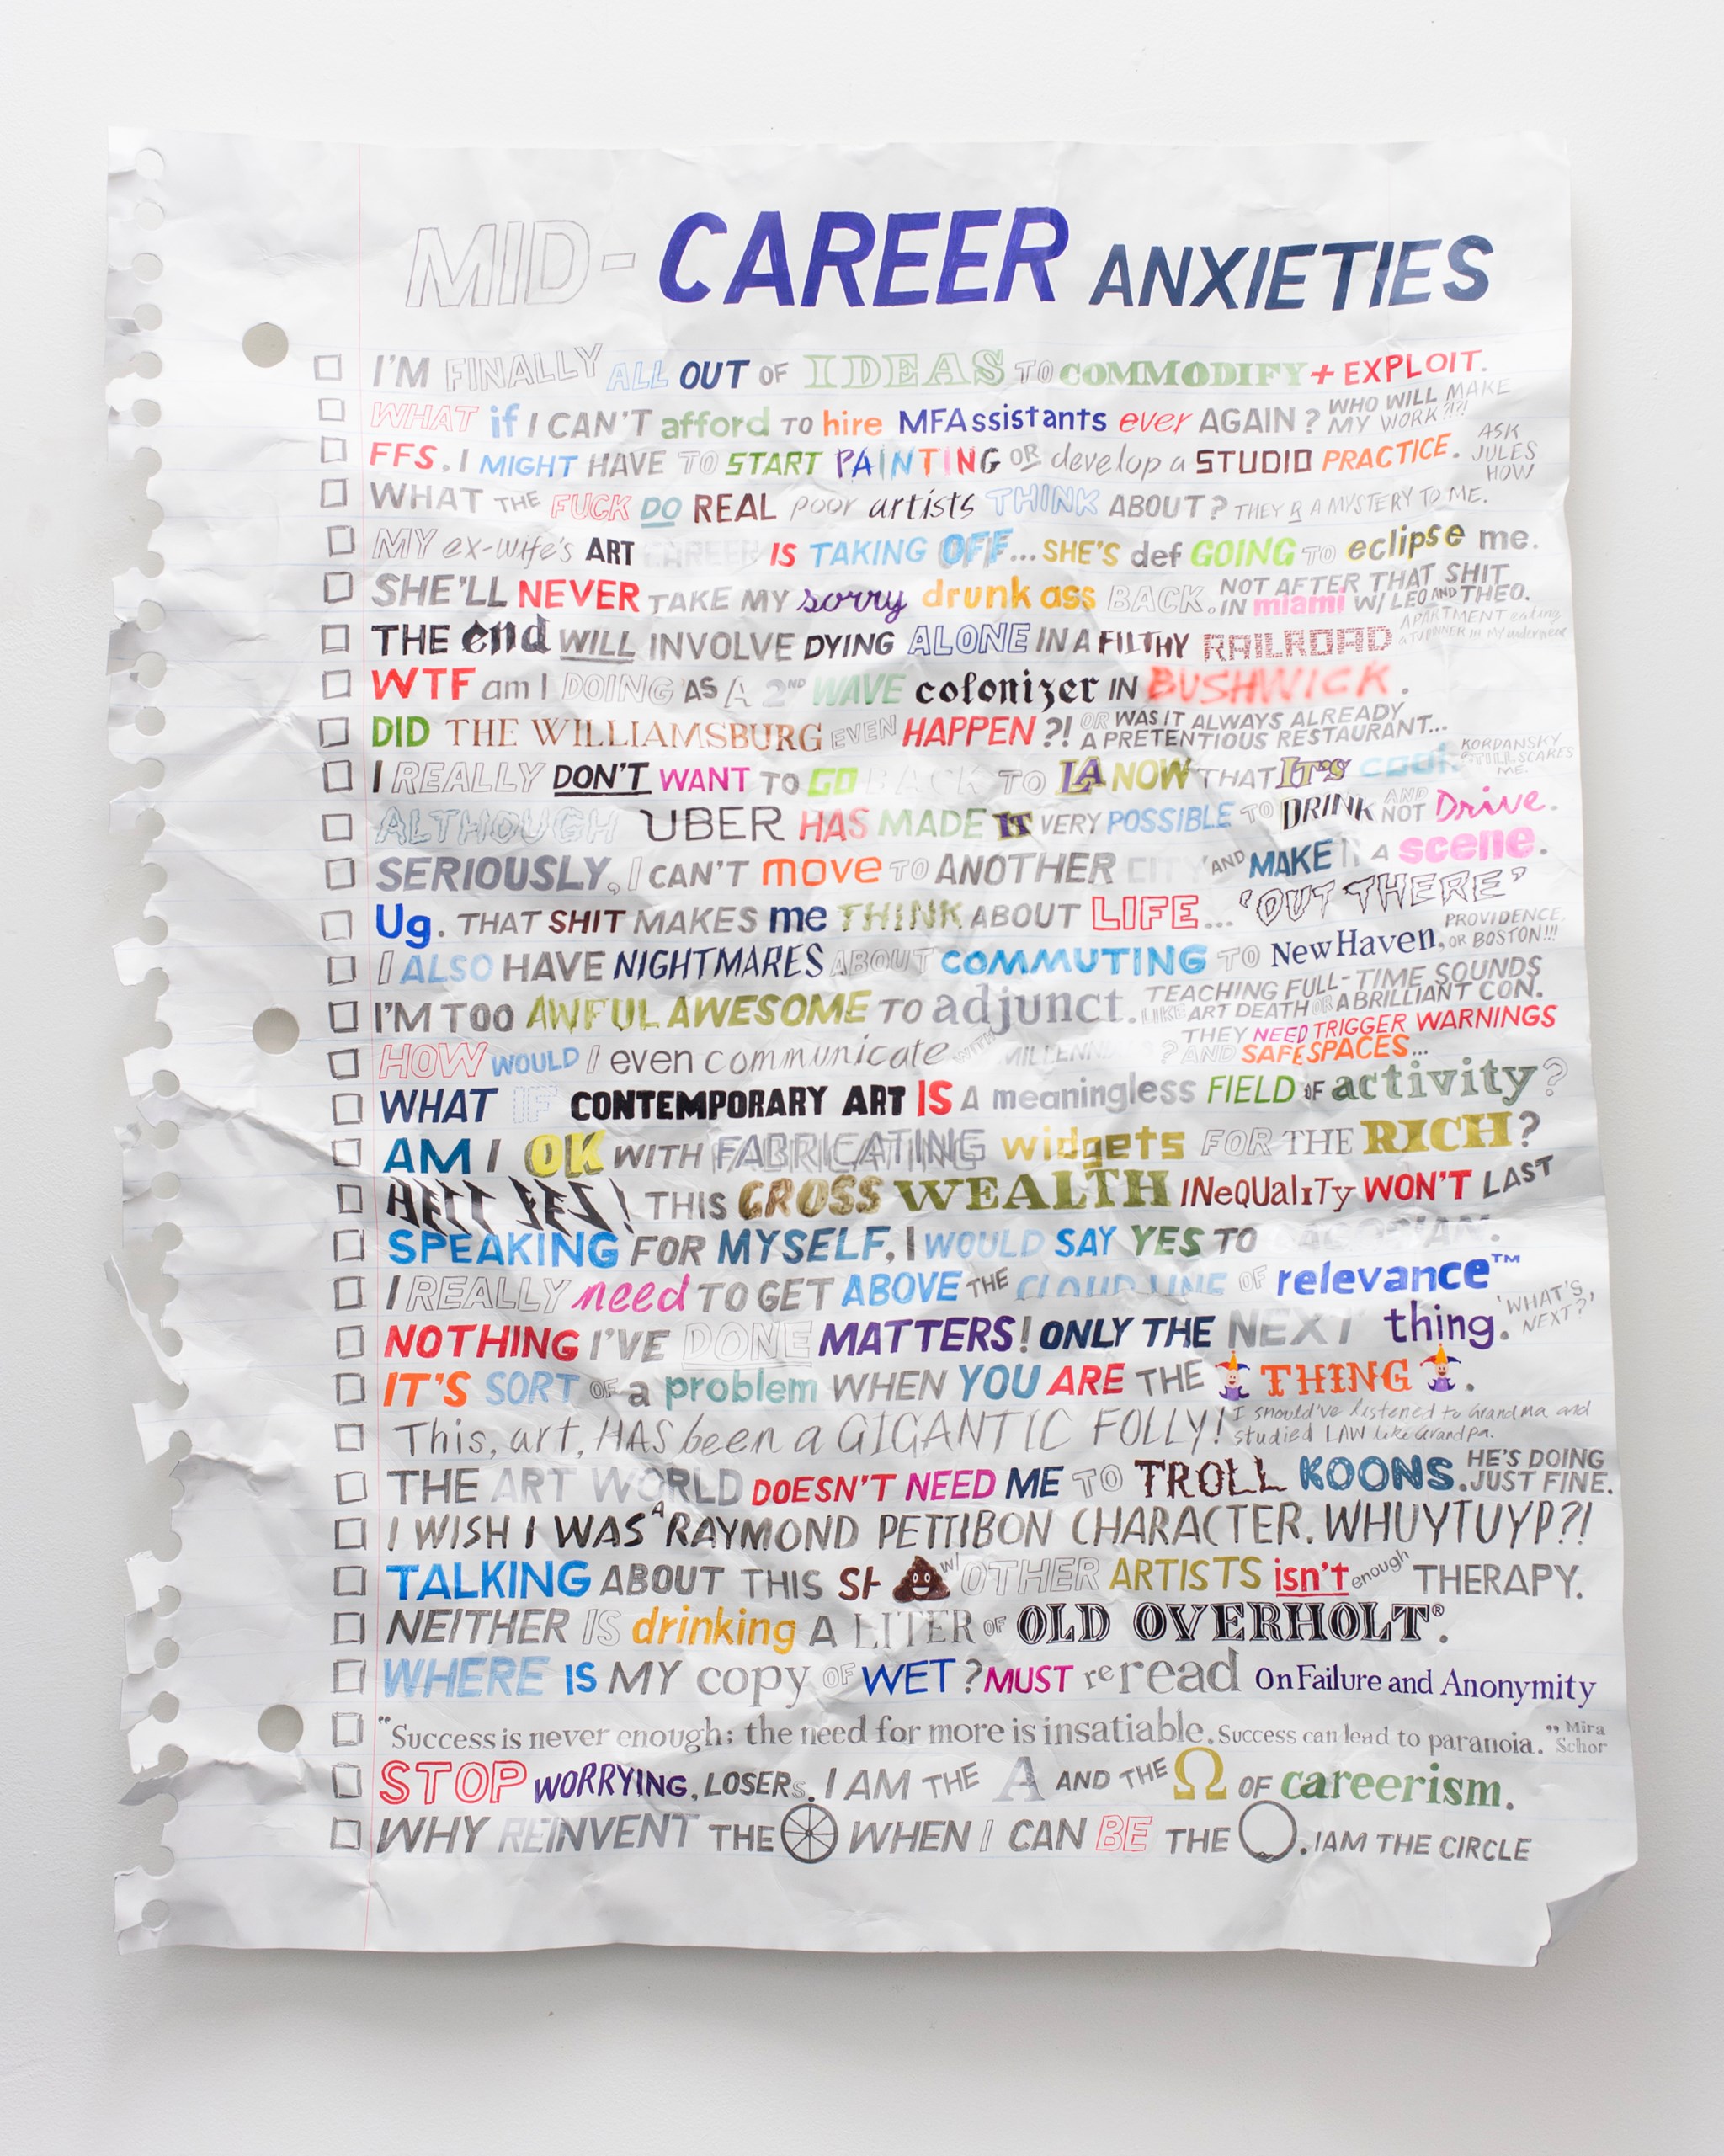 MID-CAREER ANXIETIES
I'M FINALLY ALL OUT OF IDEAS TO COMMODIFY + EXPLOIT.
WHAT if I CAN'T afford TO hire MFAssistants ever AGAIN? WHO WILL MAKE MY WORK?!?!
FFS. I MIGHT HAVE TO START PAINTING OR develop a STUDIO PRACTICE. ASK JULES HOW
WHAT THE FUCK DO REAL poor artists THINK ABOUT? THEY R A MYSTERY TO ME.
MY ex-wife's ART CAREER IS TAKING OFF... SHE'S def GOING TO eclipse me.
SHE'LL NEVER TAKE MY sorry drunk ass BACK. NOT AFTER THAT SHIT IN miami W/ LEO AND THEO.
THE end WILL INVOLVE DYING ALONE IN A FILTHY RAILROAD APARTMENT eating a TV DINNER IN MY underwear
WTF am I DOING AS A 2ND WAVE colonizer IN BUSHWICK.
DID THE WILLIAMSBURG EVEN HAPPEN?! OR WAS IT ALWAYS ALREADY A PRETENTIOUS RESTAURANT...
I REALLY DON'T WANT TO GO BACK TO LA NOW THAT IT'S cool. KORDANSKY STILL SCARES ME.
ALTHOUGH UBER HAS MADE IT VERY POSSIBLE TO DRINK AND NOT Drive.
SERIOUSLY, I CAN'T move TO ANOTHER CITY AND MAKE IT A scene.
Ug. THAT SHIT MAKES me THINK ABOUT LIFE... 'OUT THERE'
I ALSO HAVE NIGHTMARES ABOUT COMMUTING TO New Haven, PROVIDENCE, OR BOSTON!!!
I'M TOO AWFUL AWESOME TO adjunct. TEACHING FULL-TIME SOUNDS LIKE ART DEATH OR A BRILLIANT CON.
HOW WOULD I even communicate WITH MILLENNIALS? THEY NEED TRIGGER WARNINGS AND SAFE SPACES...
WHAT IF CONTEMPORARY ART IS A meaningless FIELD OF activity?
AM I OK WITH FABRICATING widgets FOR THE RICH?
HELL YES! THIS GROSS WEALTH INeQUalITy WON'T LAST
SPEAKING FOR MYSELF, I WOULD SAY YES TO GAGOSIAN.
I REALLY need TO GET ABOVE THE CLOUD LINE OF relevance™
NOTHING I'VE DONE MATTERS! ONLY THE NEXT thing. 'WHAT'S NEXT?'
IT'S SORT OF a problem WHEN YOU ARE THE THING.
This, art, HAS been a GIGANTIC FOLLY! I should've listened to Grandma and studied LAW like Grandpa.
THE ART WORLD DOESN'T NEED ME TO TROLL KOONS. HE'S DOING JUST FINE.
I WISH I WAS A RAYMOND PETTIBON CHARACTER. WHUYTUYP?!
TALKING ABOUT THIS SH💩 w/ OTHER ARTISTS isn't enough THERAPY.
NEITHER IS drinking A LITER OF OLD OVERHOLT®.
WHERE IS MY copy OF WET? MUST reread On Failure and Anonymity
"Success is never enough; the need for more is insatiable. Success can lead to paranoia." Mira Schor
STOP WORRYING, LOSERs. I AM THE A AND THE Ω OF careerism.
WHY REINVENT THE WHEN I CAN BE THE . I AM THE CIRCLE